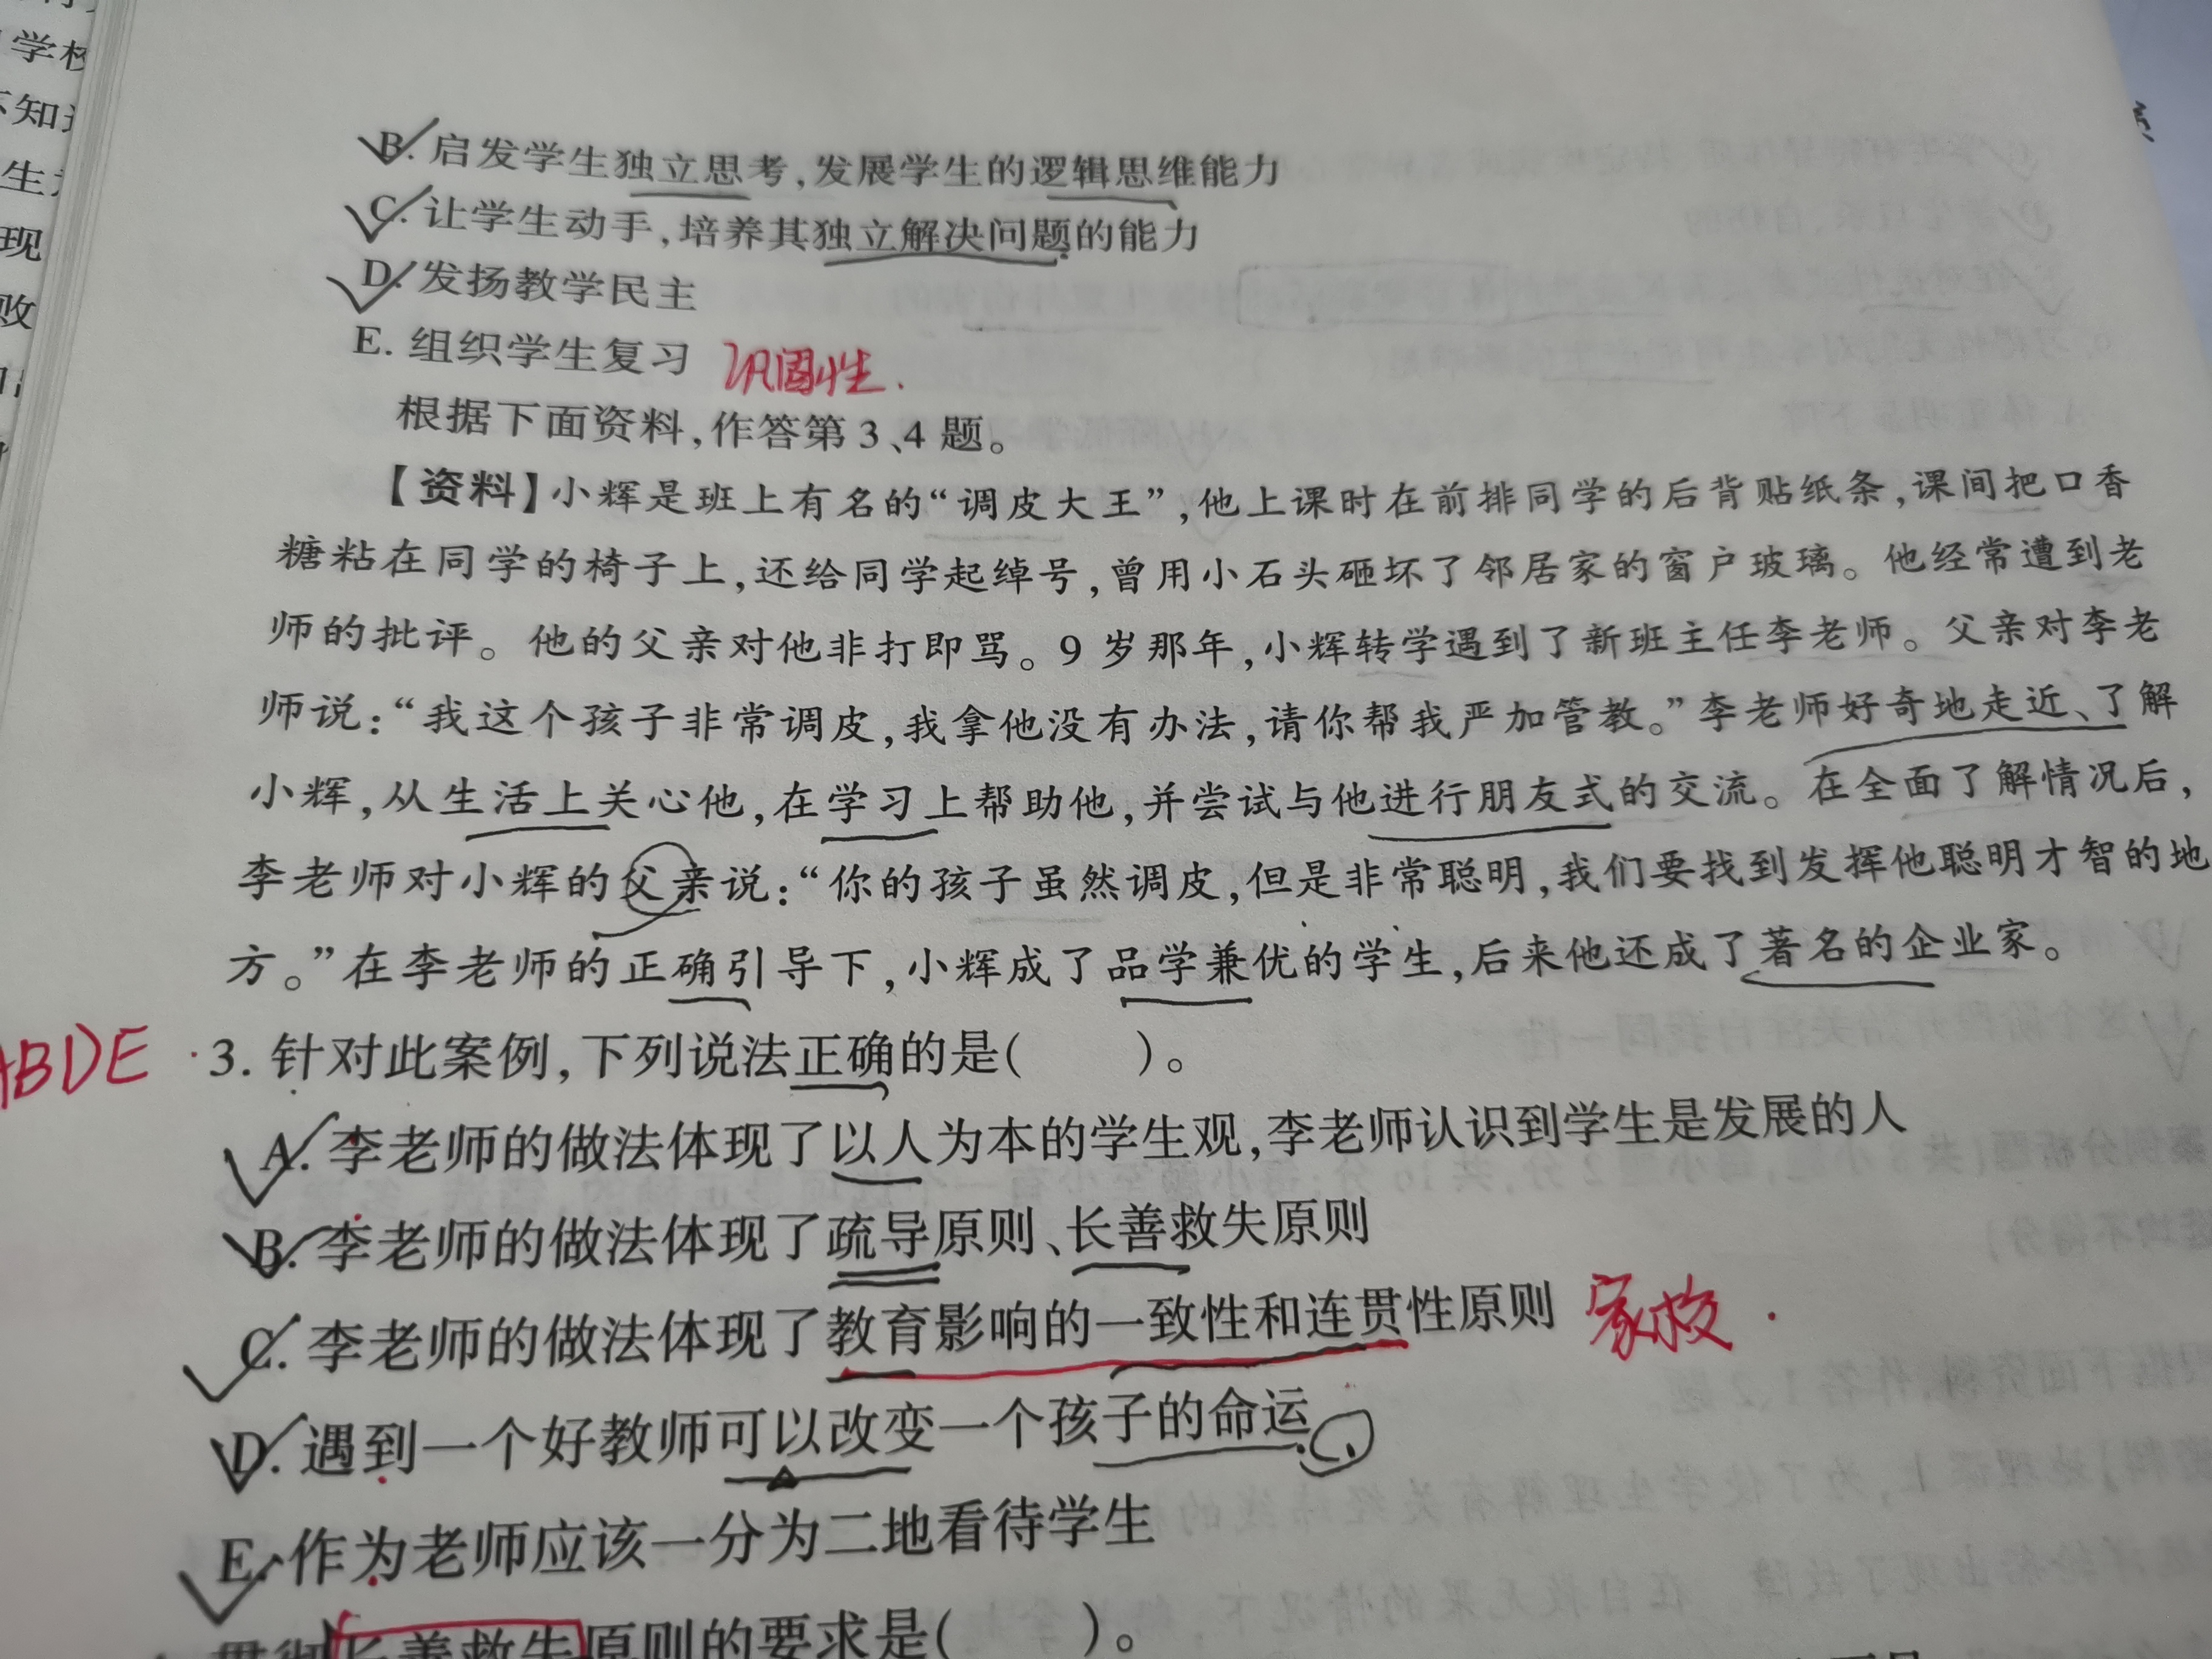 学校
不知
生
现
败
B. 启发学生独立思考,发展学生的逻辑思维能力
C. 让学生动手,培养其独立解决问题的能力
D. 发扬教学民主
E. 组织学生复习 巩固性.
根据下面资料,作答第 3、4 题。
【资料】小辉是班上有名的“调皮大王”,他上课时在前排同学的后背贴纸条,课间把口香
糖粘在同学的椅子上,还给同学起绰号,曾用小石头砸坏了邻居家的窗户玻璃。他经常遭到老
师的批评。他的父亲对他非打即骂。9 岁那年,小辉转学遇到了新班主任李老师。父亲对李老
师说:“我这个孩子非常调皮,我拿他没有办法,请你帮我严加管教。”李老师好奇地走近、了解
小辉,从生活上关心他,在学习上帮助他,并尝试与他进行朋友式的交流。在全面了解情况后,
李老师对小辉的父亲说:“你的孩子虽然调皮,但是非常聪明,我们要找到发挥他聪明才智的地
方。”在李老师的正确引导下,小辉成了品学兼优的学生,后来他还成了著名的企业家。
ABDE 3. 针对此案例,下列说法正确的是( )。
A. 李老师的做法体现了以人为本的学生观,李老师认识到学生是发展的人
B. 李老师的做法体现了疏导原则、长善救失原则
C. 李老师的做法体现了教育影响的一致性和连贯性原则 家校
D. 遇到一个好教师可以改变一个孩子的命运
E. 作为老师应该一分为二地看待学生
贯彻长善救失原则的要求是( )。